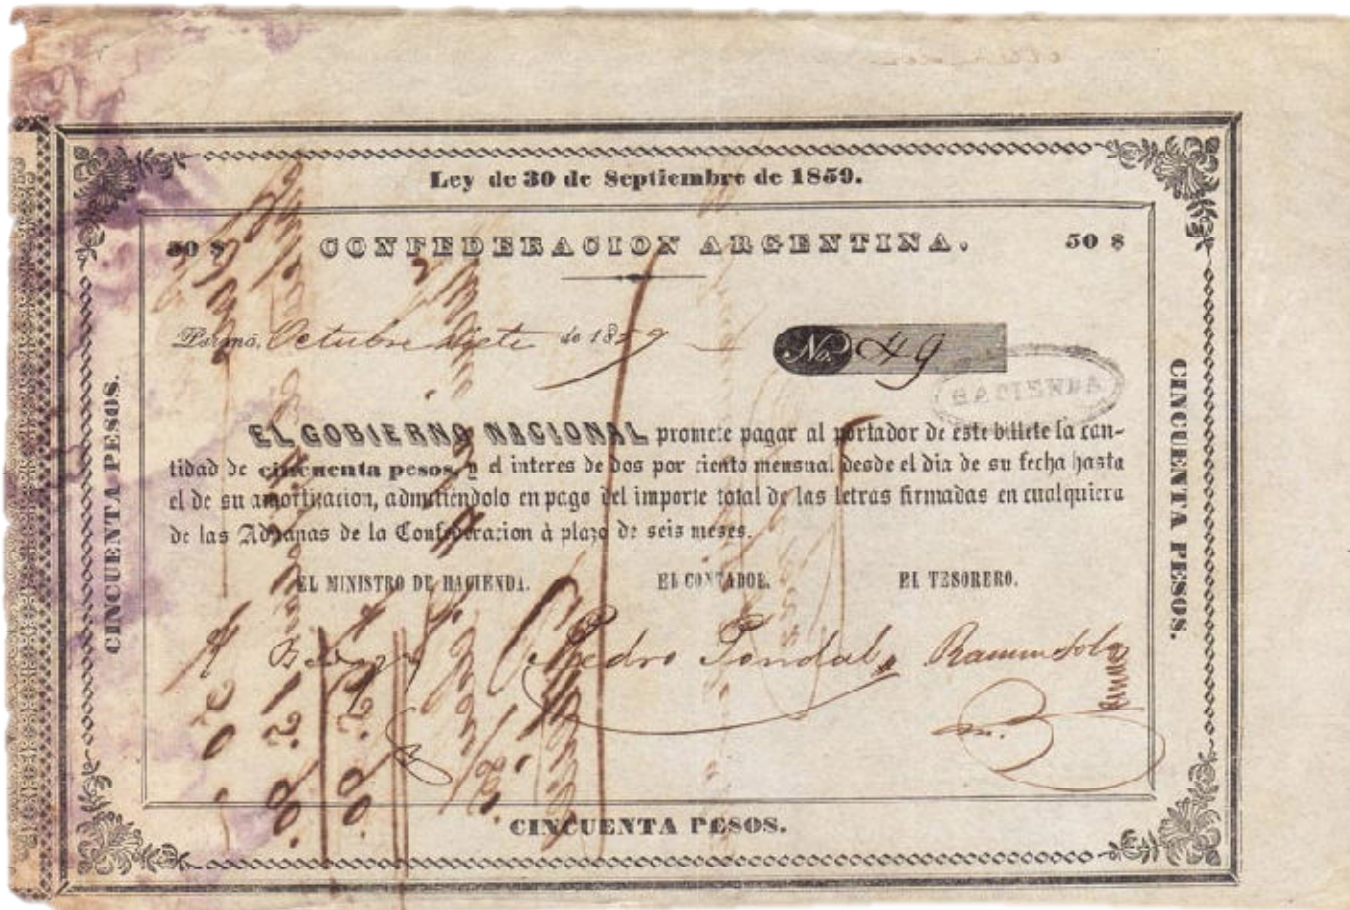 Ley de 30 de Septiembre de 1859.
50 $ CONFEDERACION ARGENTINA. 50 $
Paraná, Octubre siete de 1859
No. 49
HACIENDA
EL GOBIERNO NACIONAL promete pagar al portador de este billete la can-
tidad de cincuenta pesos, y el interes de dos por ciento mensual desde el dia de su fecha hasta
el de su amortizacion, admitiéndolo en pago del importe total de las letras firmadas en cualquiera
de las Aduanas de la Confederacion à plazo de seis meses.
EL MINISTRO DE HACIENDA. EL CONTADOR. EL TESORERO.
Pedro
CINCUENTA PESOS.
CINCUENTA PESOS.
CINCUENTA PESOS.